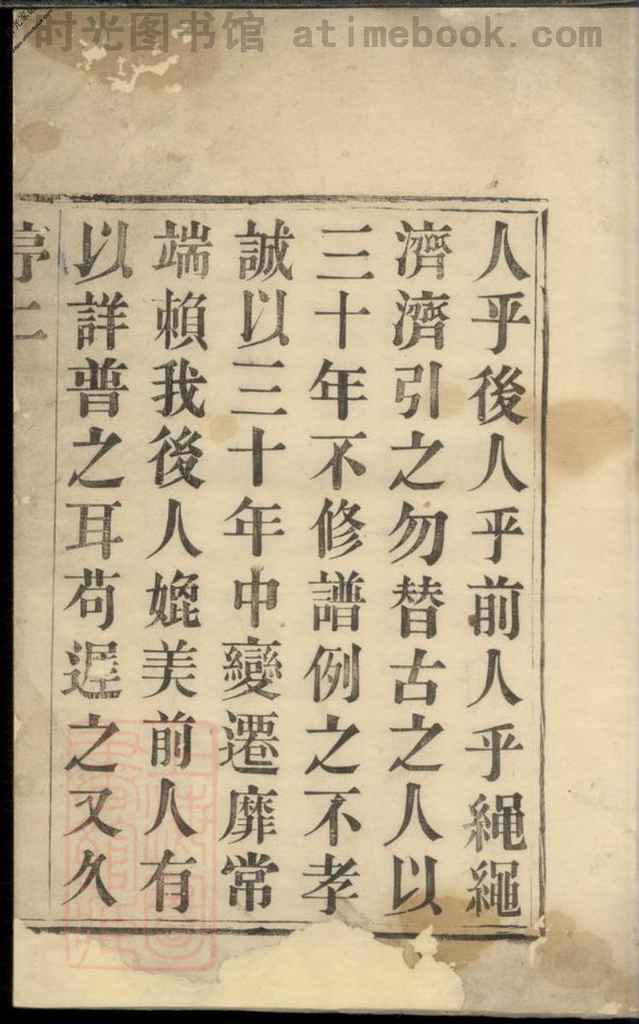 时光图书馆 atimebook.com
人乎後人乎前人乎繩繩
濟濟引之勿替古之人以
三十年不修譜例之不孝
誠以三十年中變遷靡常
端賴我後人媲美前人有
以詳普之耳苟遲之又久
序二